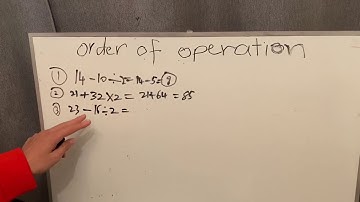 order of operation
① 14-10÷2=14-5=⑨
② 21+32×2=21+64=85
③ 23-15÷2=